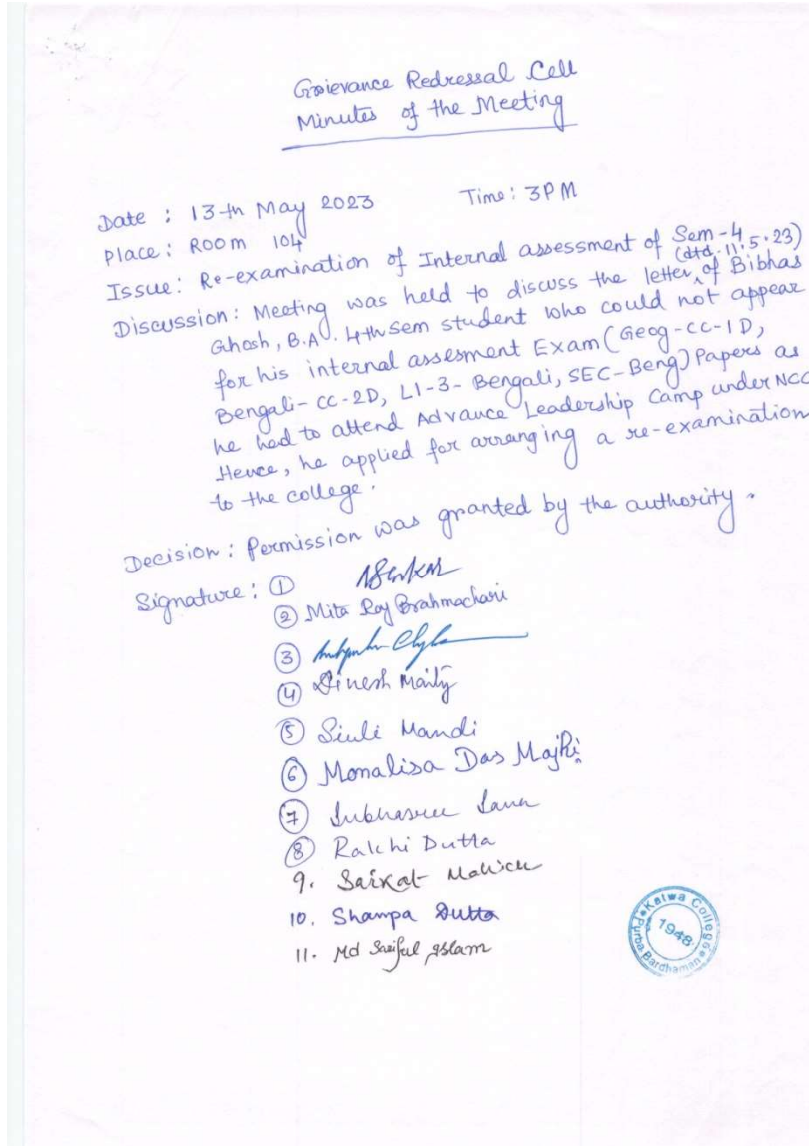 Grievance Redressal Cell
Minutes of the Meeting
Date : 13th May 2023 Time: 3PM
Place: Room 104
Issue: Re-examination of Internal assessment of Sem-4
Discussion: Meeting was held to discuss the letter (dtd. 11.5.23) of Bibhas
Ghosh, B.A. 4th Sem student who could not appear
for his internal assesment Exam (Geog-CC-1D,
Bengali-CC-2D, L1-3-Bengali, SEC-Beng) Papers as
he had to attend Advance Leadership Camp under NCC
Hence, he applied for arranging a re-examination
to the college.
Decision: Permission was granted by the authority.
Signature: ①
② Mita Roy Brahmachari
③
④ Dinesh Maity
⑤ Siuli Mandi
⑥ Monalisa Das Majhi
⑦ Subhasree
⑧ Rakhi Dutta
9. Saikat Mallick
10. Shampa Dutta
11. Md Saiful Islam
Katwa College
1948
Purba Bardhaman